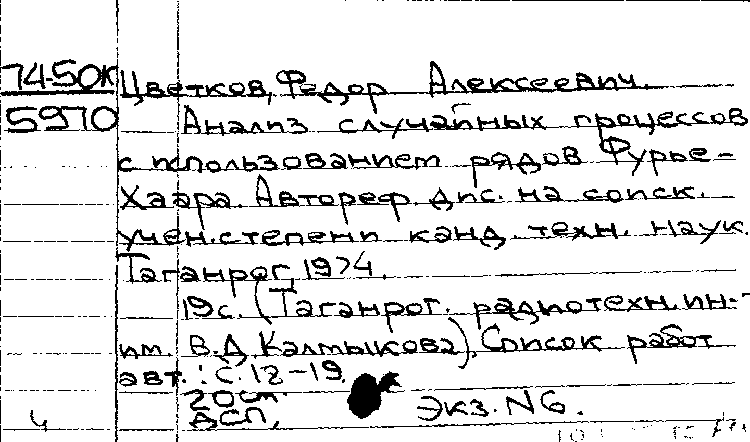 74-50К
5970
Цветков, Федор Алексеевич.
Анализ случайных процессов
с использованием рядов Фурье-
Хаара. Автореф. дис. на соиск.
учен. степени канд. техн. наук.
Таганрог, 1974.
19с. (Таганрог. радиотехн. ин-т
им. В.Д. Калмыкова). Список работ
авт.: с. 18-19.
ДСП.
Экз. N6.
4